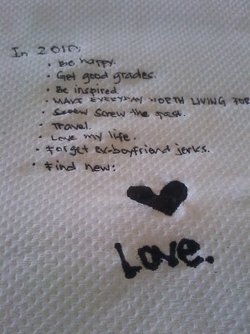 In 2010,
• Be happy.
• Get good grades.
• Be inspired.
• MAKE EVERYDAY WORTH LIVING FOR
• Screw the past.
• Travel.
• Love my life.
• Forget ex-boyfriend jerks.
• Find new:
Love.